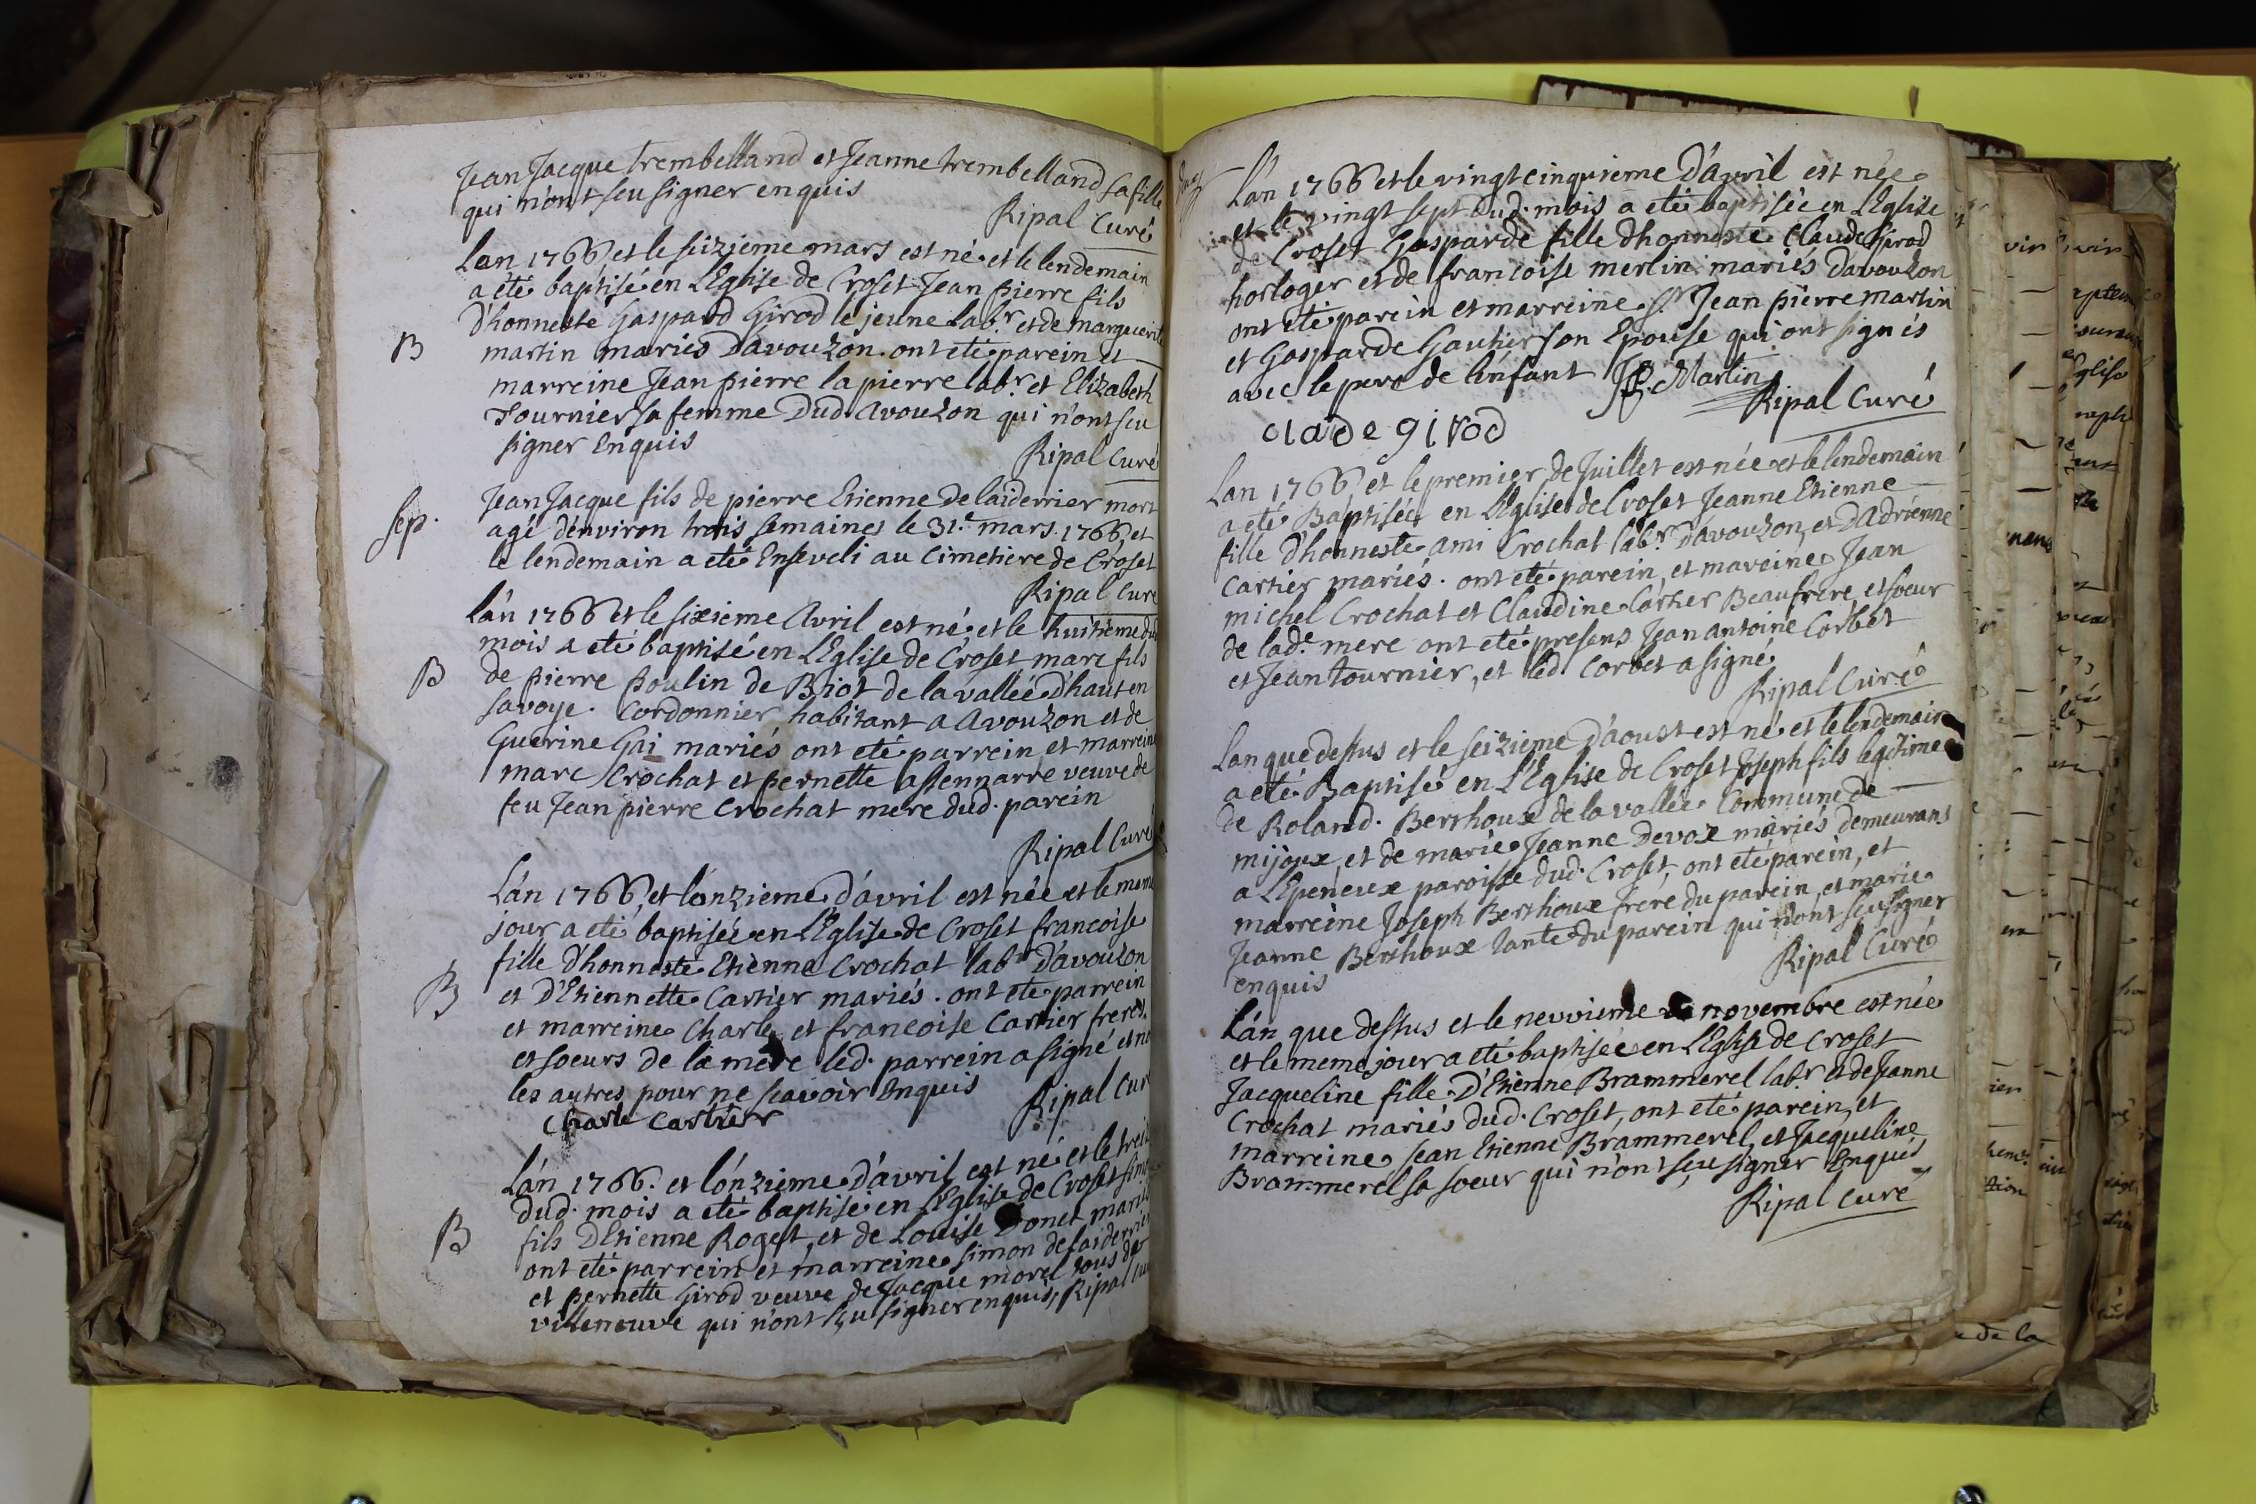 Jean Jacque trembelland et Jeanne trembelland sa fille
qui n'ont sçu signer enquis
Ripal Curé
Lan 1766 et le seizieme mars est né et le lendemain
a eté baptisé en L'Eglise de Croset Jean pierre fils
D'honneste Gaspard Girod le jeune lab.r et de marguerite
B
martin mariés Davouzon. ont eté parein et
marreine Jean pierre la pierre lab.r et Elizabeth
Tournier sa femme Dud. avouzon qui n'ont sçu
signer Enquis
Ripal Curé
Sep.
Jean Jacque fils de pierre Etienne Delaiderrier mort
agé d'environ trois semaines le 31.e mars 1766, et
le lendemain a eté Enseveli au Cimetiere de Croset
Ripal Curé
Lán 1766 et le sixieme Avril est né et le huitieme dud
mois a eté baptisé en L'Eglise de Croset marc fils
B
de pierre poulin de Biot de la vallée d'haut en
savoye. Cordonnier habitant a Avouzon et de
Guerine Gai mariés ont eté parrein et marreine
marc Crochat et pernette assennarre veuve de
feu Jean pierre Crochat mere dud. parein
Ripal Curé
Lán 1766, et lónzieme d'avril est née et le meme
jour a eté baptisée en L'Eglise de Croset francoise
fille D'honneste Etienne Crochat lab.r D'avouzon
B
et D'Etiennette Cartier mariés. ont eté parrein
et marreine Charle et francoise Cartier freres
et soeurs de la mere led. parrein a signé et no
les autres pour ne scavoir Enquis
Ripal Curé
Charle Cartier
Lán 1766. et lónzieme d'avril est né et le treiz
dud. mois a eté baptisé en L'Eglise de Croset simo
B
fils D'Etienne Roget, et de Louise Donet mariés
ont eté parrein et marreine simon delaiderrier
et pernette Girod veuve de Jacque morel tous de
villeneuve qui n'ont sçu signer enquis, Ripal Curé
Lán 1766 et le vingt cinquieme D'avril est née
et le vingt sept dud. mois a eté baptisée en L'Eglise
de Croset Gasparde fille d'honneste Claude Girod
horloger et de francoise merlin mariés D'avouzon
ont eté parein et marreine S.r Jean pierre martin
et Gasparde Gautier son Epouse qui ont signés
avec le pere de l'enfant JP. Martin
Ripal Curé
clade girod
Lan 1766 et le premier de Juillet est née et le lendemain
a eté Baptisée en L'Eglise de Croset Jeanne Etienne
fille D'honneste ami Crochat lab.r D'avouzon, et D'adriénne
Cartier mariés. ont eté parein, et mareine Jean
michel Crochat et Claudine Cartier Beaufrere, et soeur
de lad.e mere ont eté presens Jean antoine Corbet
et Jean tournier, et led. Corbet a signé
Ripal Curé
Lan que dessus et le seizieme D'aoust est né et le lendemain
a eté Baptisé en L'Eglise de Croset Joseph fils legitime
de Roland. Berthoux de la vallée Commune de
mijoux, et de marie Jeanne Devox mariés demeurans
a L'Epeneux paroisse dud. Croset, ont eté parein, et
marreine Joseph Berthoux frere du parein, et marie
Jeanne Berthoux tante du parein qui n'ont sçu signer
enquis
Ripal Curé
Lán que dessus et le neuvieme de novembre est née
et le meme jour a eté baptisée en L'Eglise de Croset
Jacqueline fille D'Etienne Brammerel lab.r et de Jeanne
Crochat mariés dud. Croset, ont eté parein, et
marreine Jean Etienne Brammerel, et Jacqueline
Brammerel sa soeur qui n'ont sçu signer Enquis
Ripal Curé